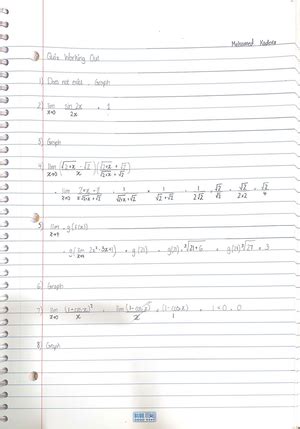 Mohammed
Quiz Working Out
1) Does not exist. Graph
2) lim x→0 sin 2x / 2x = 1
3) Graph
4) lim x→0 (√(2+x) - √2 / x) (√(2+x) + √2 / √(2+x) + √2)
= lim x→0 2+x-2 / x(√(2+x) + √2) = 1 / √(2+x) + √2 = 1 / √2 + √2 = 1 / 2√2 · √2 / √2 = √2 / 2×2 = √2 / 4
5) lim x→4 = g(f(x))
= g(lim x→4 2x² - 3x + 1) = g(21) = g(21) = ³√(21+6) = g(21) ³√27 = 3
6) Graph
7) lim x→0 (1-cos x)² / x
8) Graph